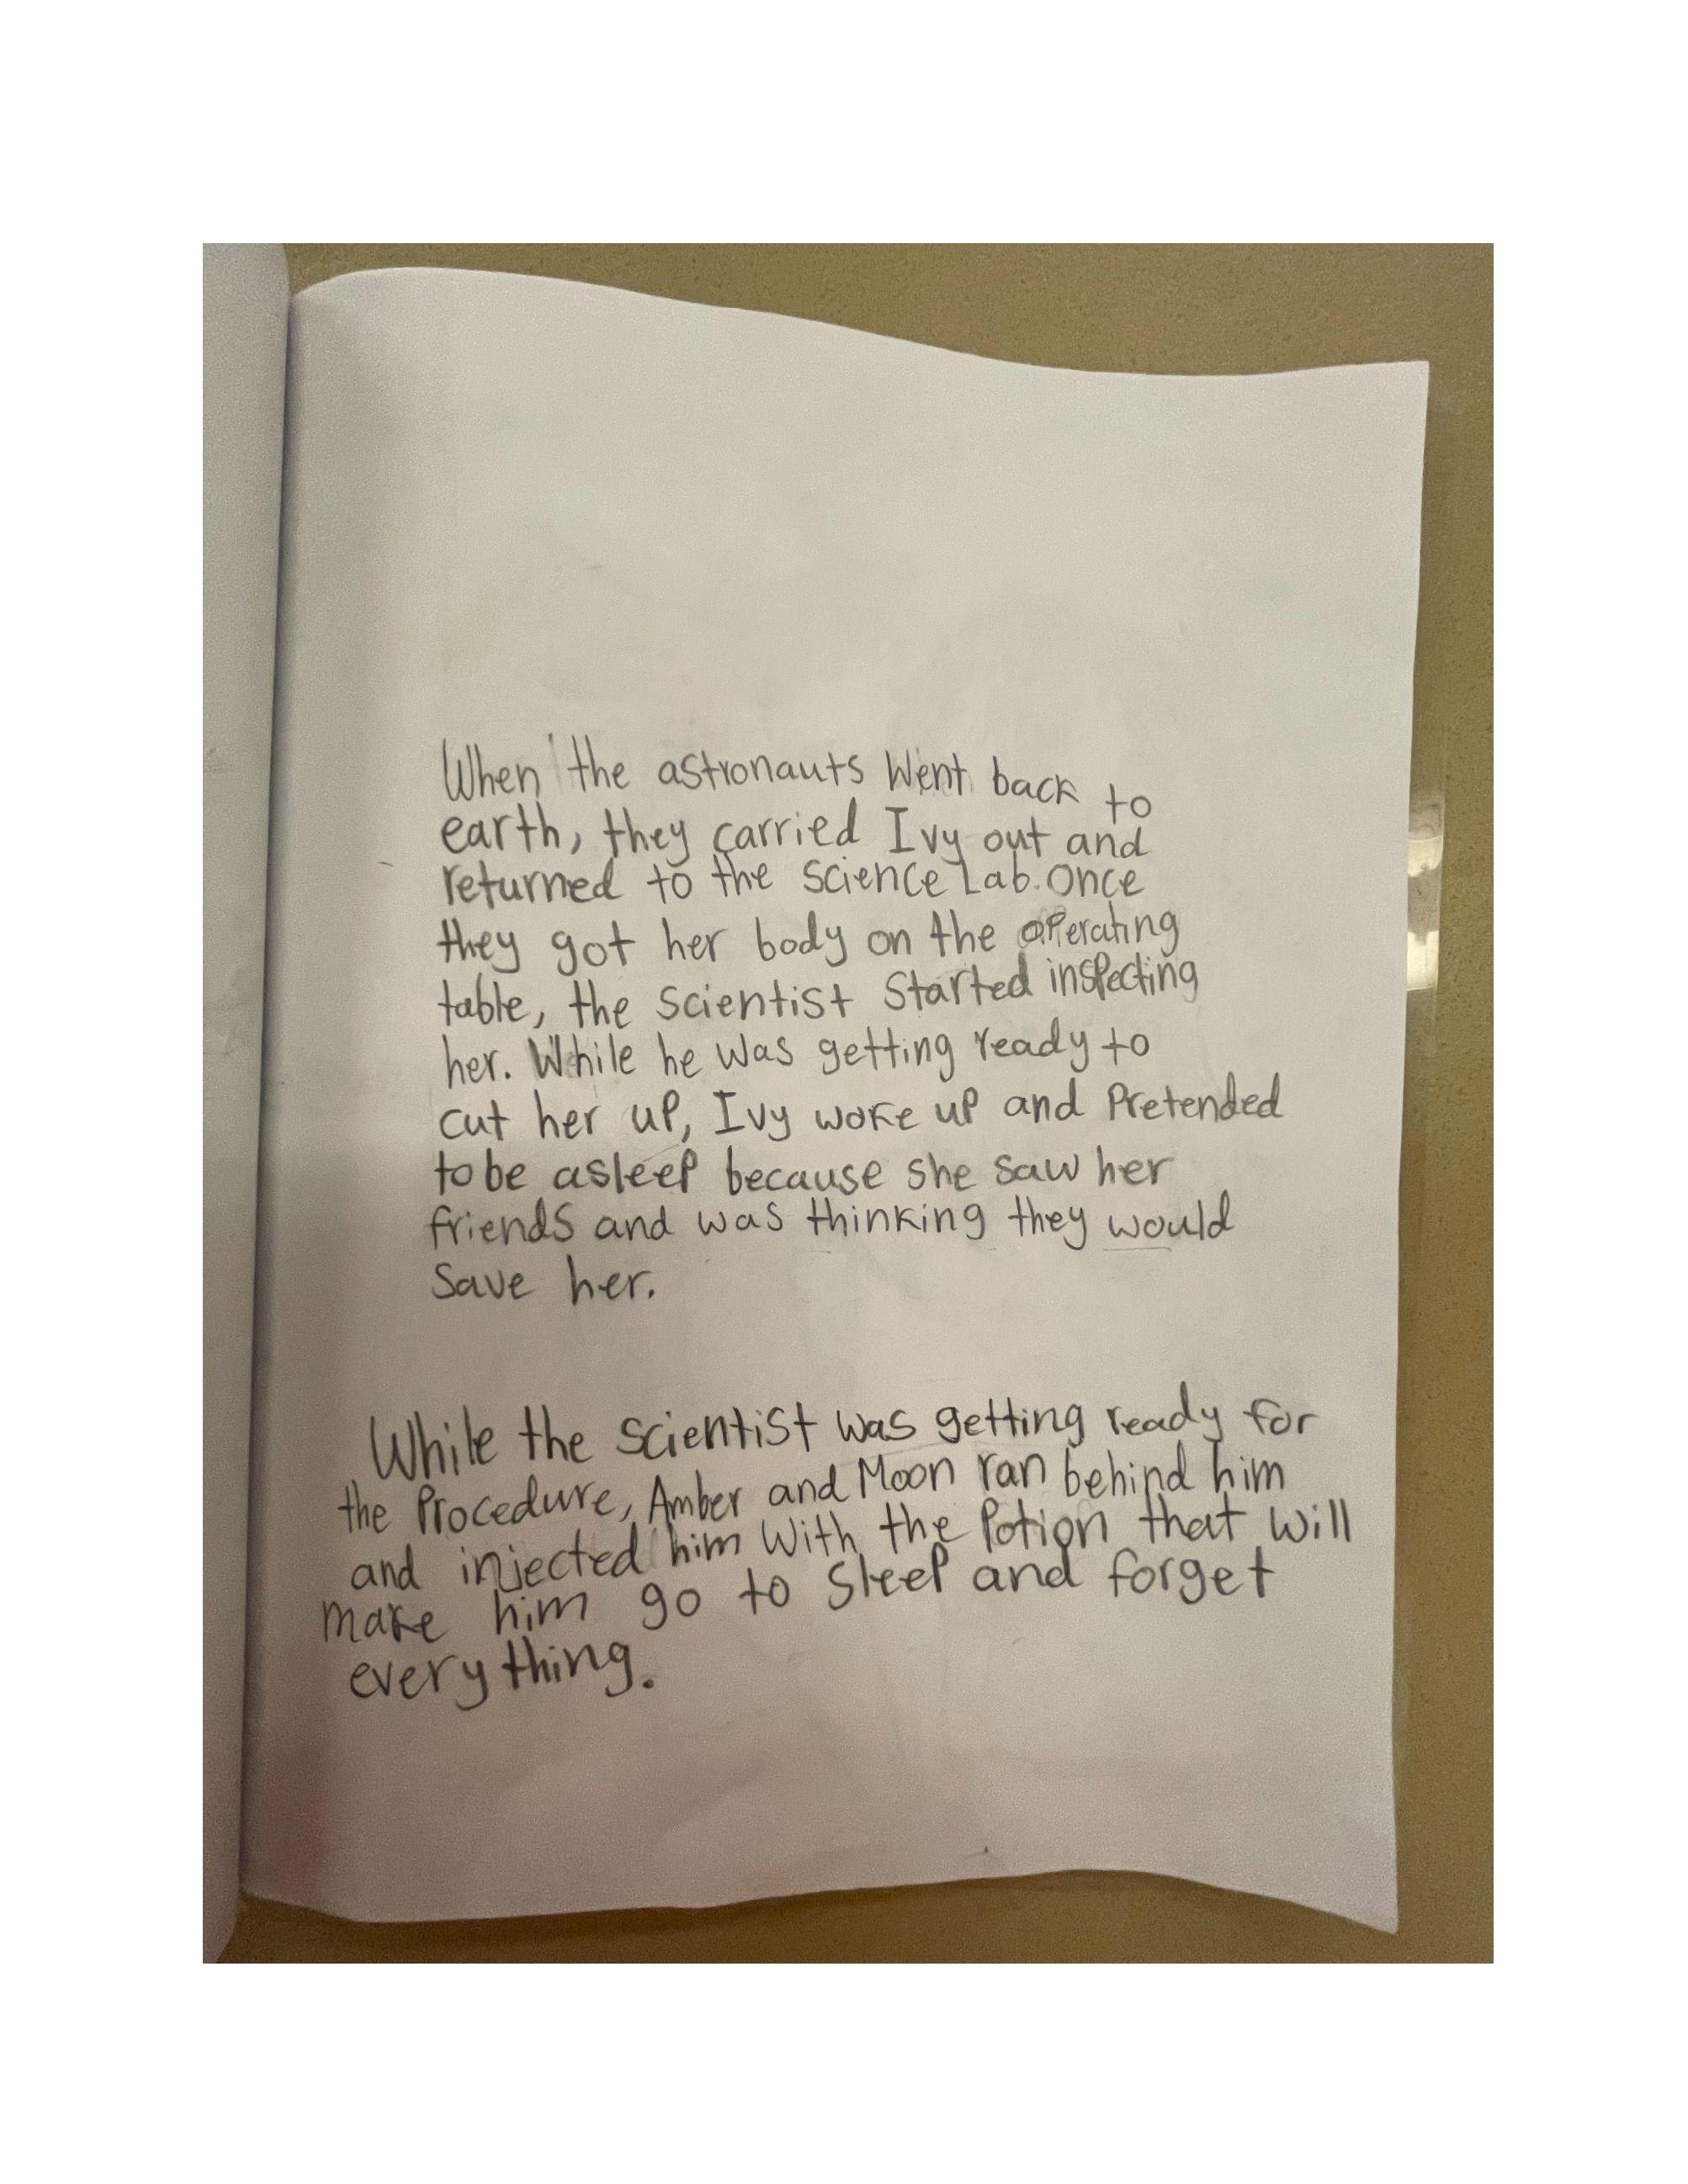 When the astronauts Went back to
earth, they carried Ivy out and
returned to the science Lab. Once
they got her body on the operating
table, the scientist Started inspecting
her. While he was getting ready to
cut her up, Ivy woke up and Pretended
to be asleep because she saw her
friends and was thinking they would
Save her.
While the scientist was getting ready for
the Procedure, Amber and Moon ran behind him
and injected him With the Potion that will
make him go to Sleep and forget
every thing.